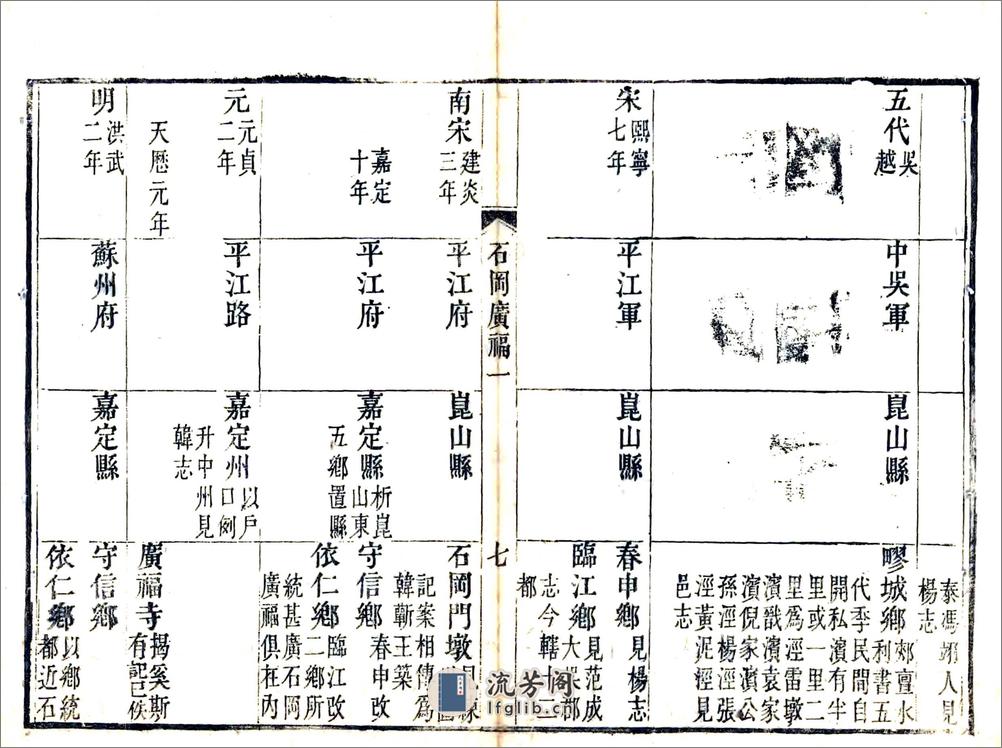 泰馮翊人見
楊志
五代吳
越
中吳軍
崑山縣
疁城鄉郟亶水
利書五
代季民間自
開私濱有半
里或一里二
里爲涇雷墩
濱戩濱袁家
濱倪家濱公
孫涇楊涇張
涇黃泥涇見
邑志
宋熙寧
七年
平江軍
崑山縣
春申鄉見楊志
臨江鄉見范成
大吳郡
志今轄十二
都
石岡廣福一
七
南宋建炎
三年
平江府
崑山縣
石岡門墩
記案相傳爲
韓蘄王築
嘉定
十年
平江府
嘉定縣析崑
山東
五鄉置縣
守信鄉春申改
依仁鄉臨江改
二鄉所
統甚廣石岡
廣福俱在內
元元貞
二年
平江路
嘉定州以戶
口例
升中州見
韓志
天曆元年
廣福寺揭奚斯
有記已佚
明洪武
二年
蘇州府
嘉定縣
守信鄉
依仁鄉以鄉統
都近石
流芳閣
lfglib.cn